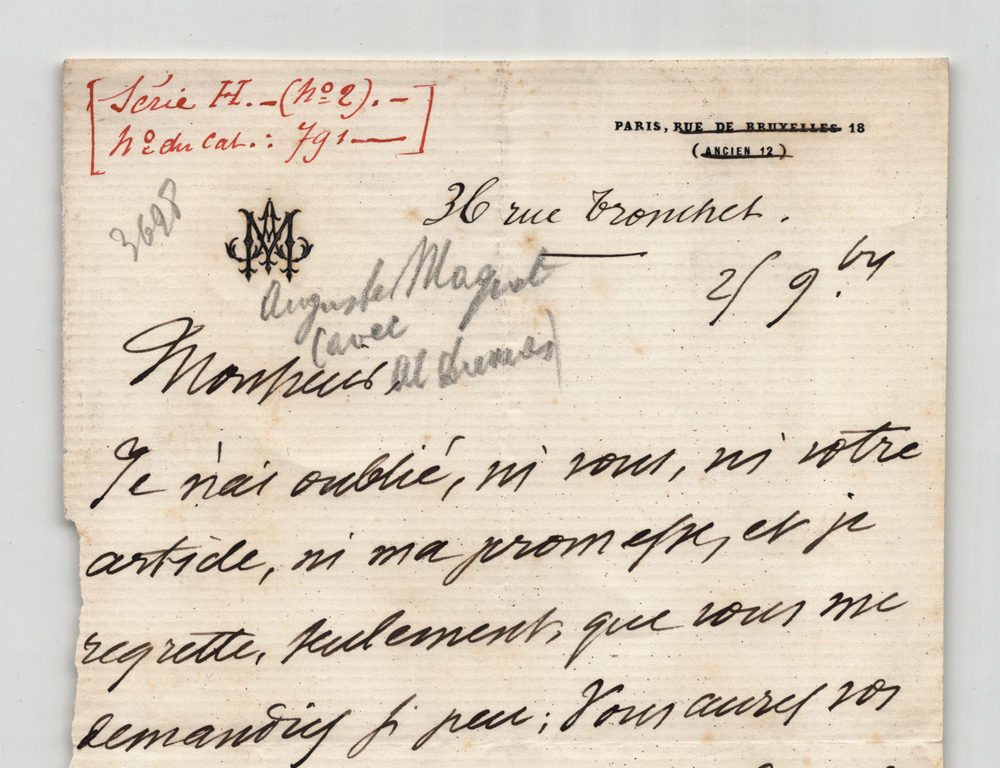 Série H. - (nº 2). -
nº du cat. : 791 —
PARIS, RUE DE BRUXELLES 18
(ANCIEN 12)
3698
36 rue Tronchet.
25 9.bre
Auguste Maquet
(avec
Al Dumas)
Monsieur,
Je n'ai oublié, ni vous, ni votre
article, ni ma promesse, et je
regrette, seulement, que vous me
demandiez si peu ; Vous aurez vos